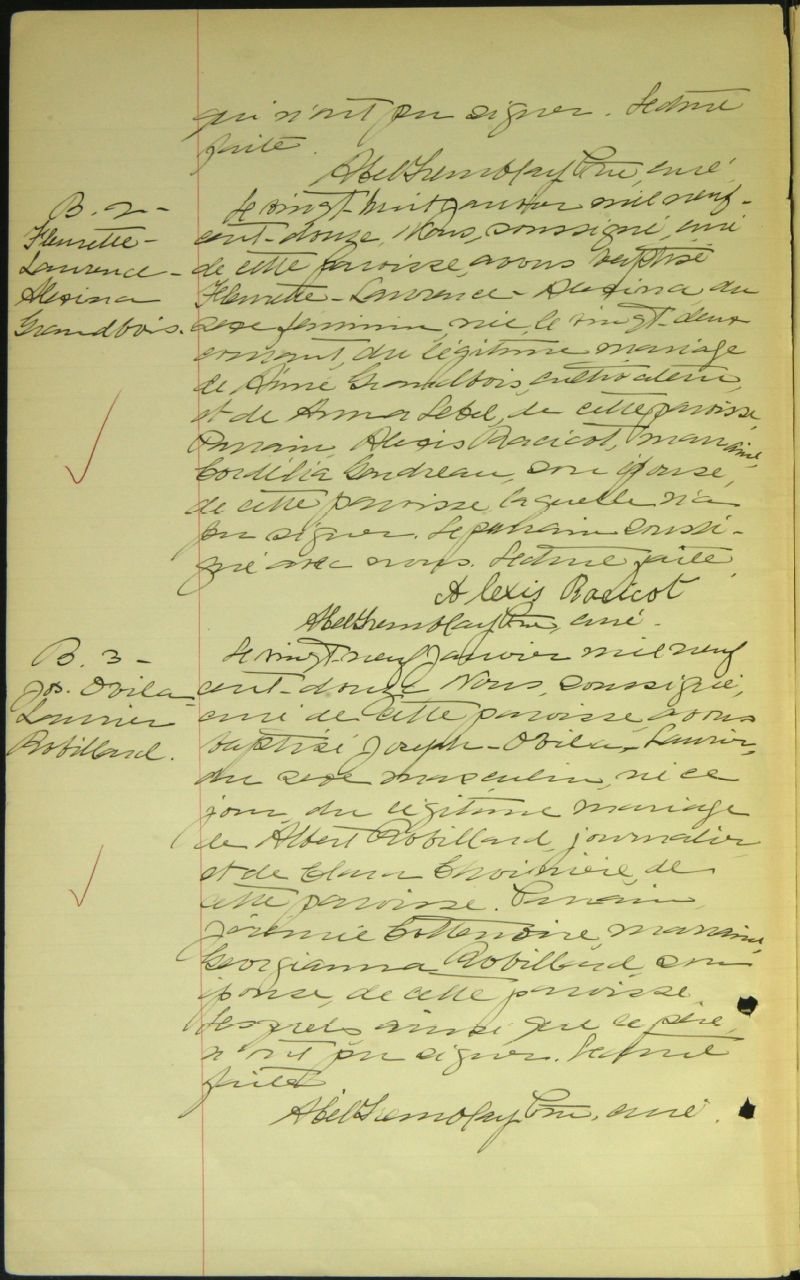 qui n'ont pu signer. Lecture
faite.
Abel Tremblay Ptre, curé
B. 2 -
Fleurette -
Laurence -
Alexina
Grandbois.
Le vingt-huit Janvier mil neuf-
cent-douze, Nous, soussigné, curé
de cette paroisse, avons baptisé
Fleurette - Laurence - Alexina, du
sexe féminin, née, le vingt-deux
courant, du légitime mariage
de Aimé Grandbois, cultivateur,
et de Anna Lebel, de cette paroisse,
Parrain, Alexis Racicot, marraine,
Cordélia Gendreau, son épouse,
de cette paroisse, laquelle n'a
pu signer. Le parrain a soussi-
gné avec nous. Lecture faite.
Alexis Racicot
Abel Tremblay Ptre, curé.
B. 3 -
Jos. Ovila
Laurier
Robillard.
Le vingt-neuf Janvier mil neuf
cent-douze Nous, soussigné,
curé de cette paroisse, avons
baptisé Joseph - Ovila - Laurier,
du sexe masculin, né ce
jour, du légitime mariage
de Albert Robillard, journalier
et de Clara Choinière, de
cette paroisse. Parrain,
Jérémie Cottenoire, marraine,
Georgianna Robillard, son
épouse, de cette paroisse
lesquels ainsi que le père,
n'ont pu signer. Lecture
faite
Abel Tremblay Ptre, curé.